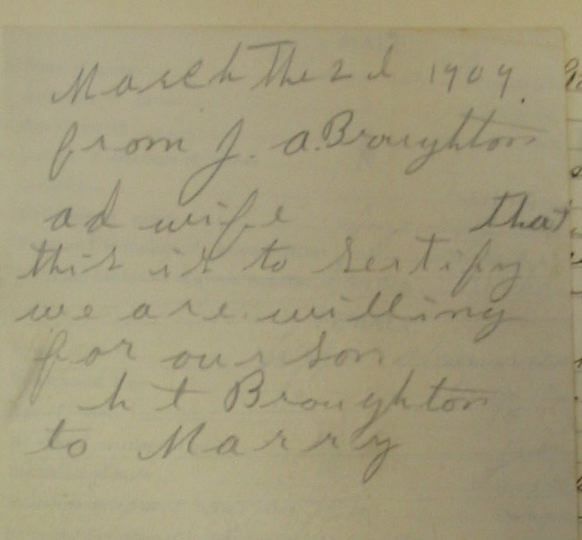 March The 2 d 1909.
from J. A. Broughton
ad wife that
this is to sertify
we are willing
for our son
h t Broughton
to Marry